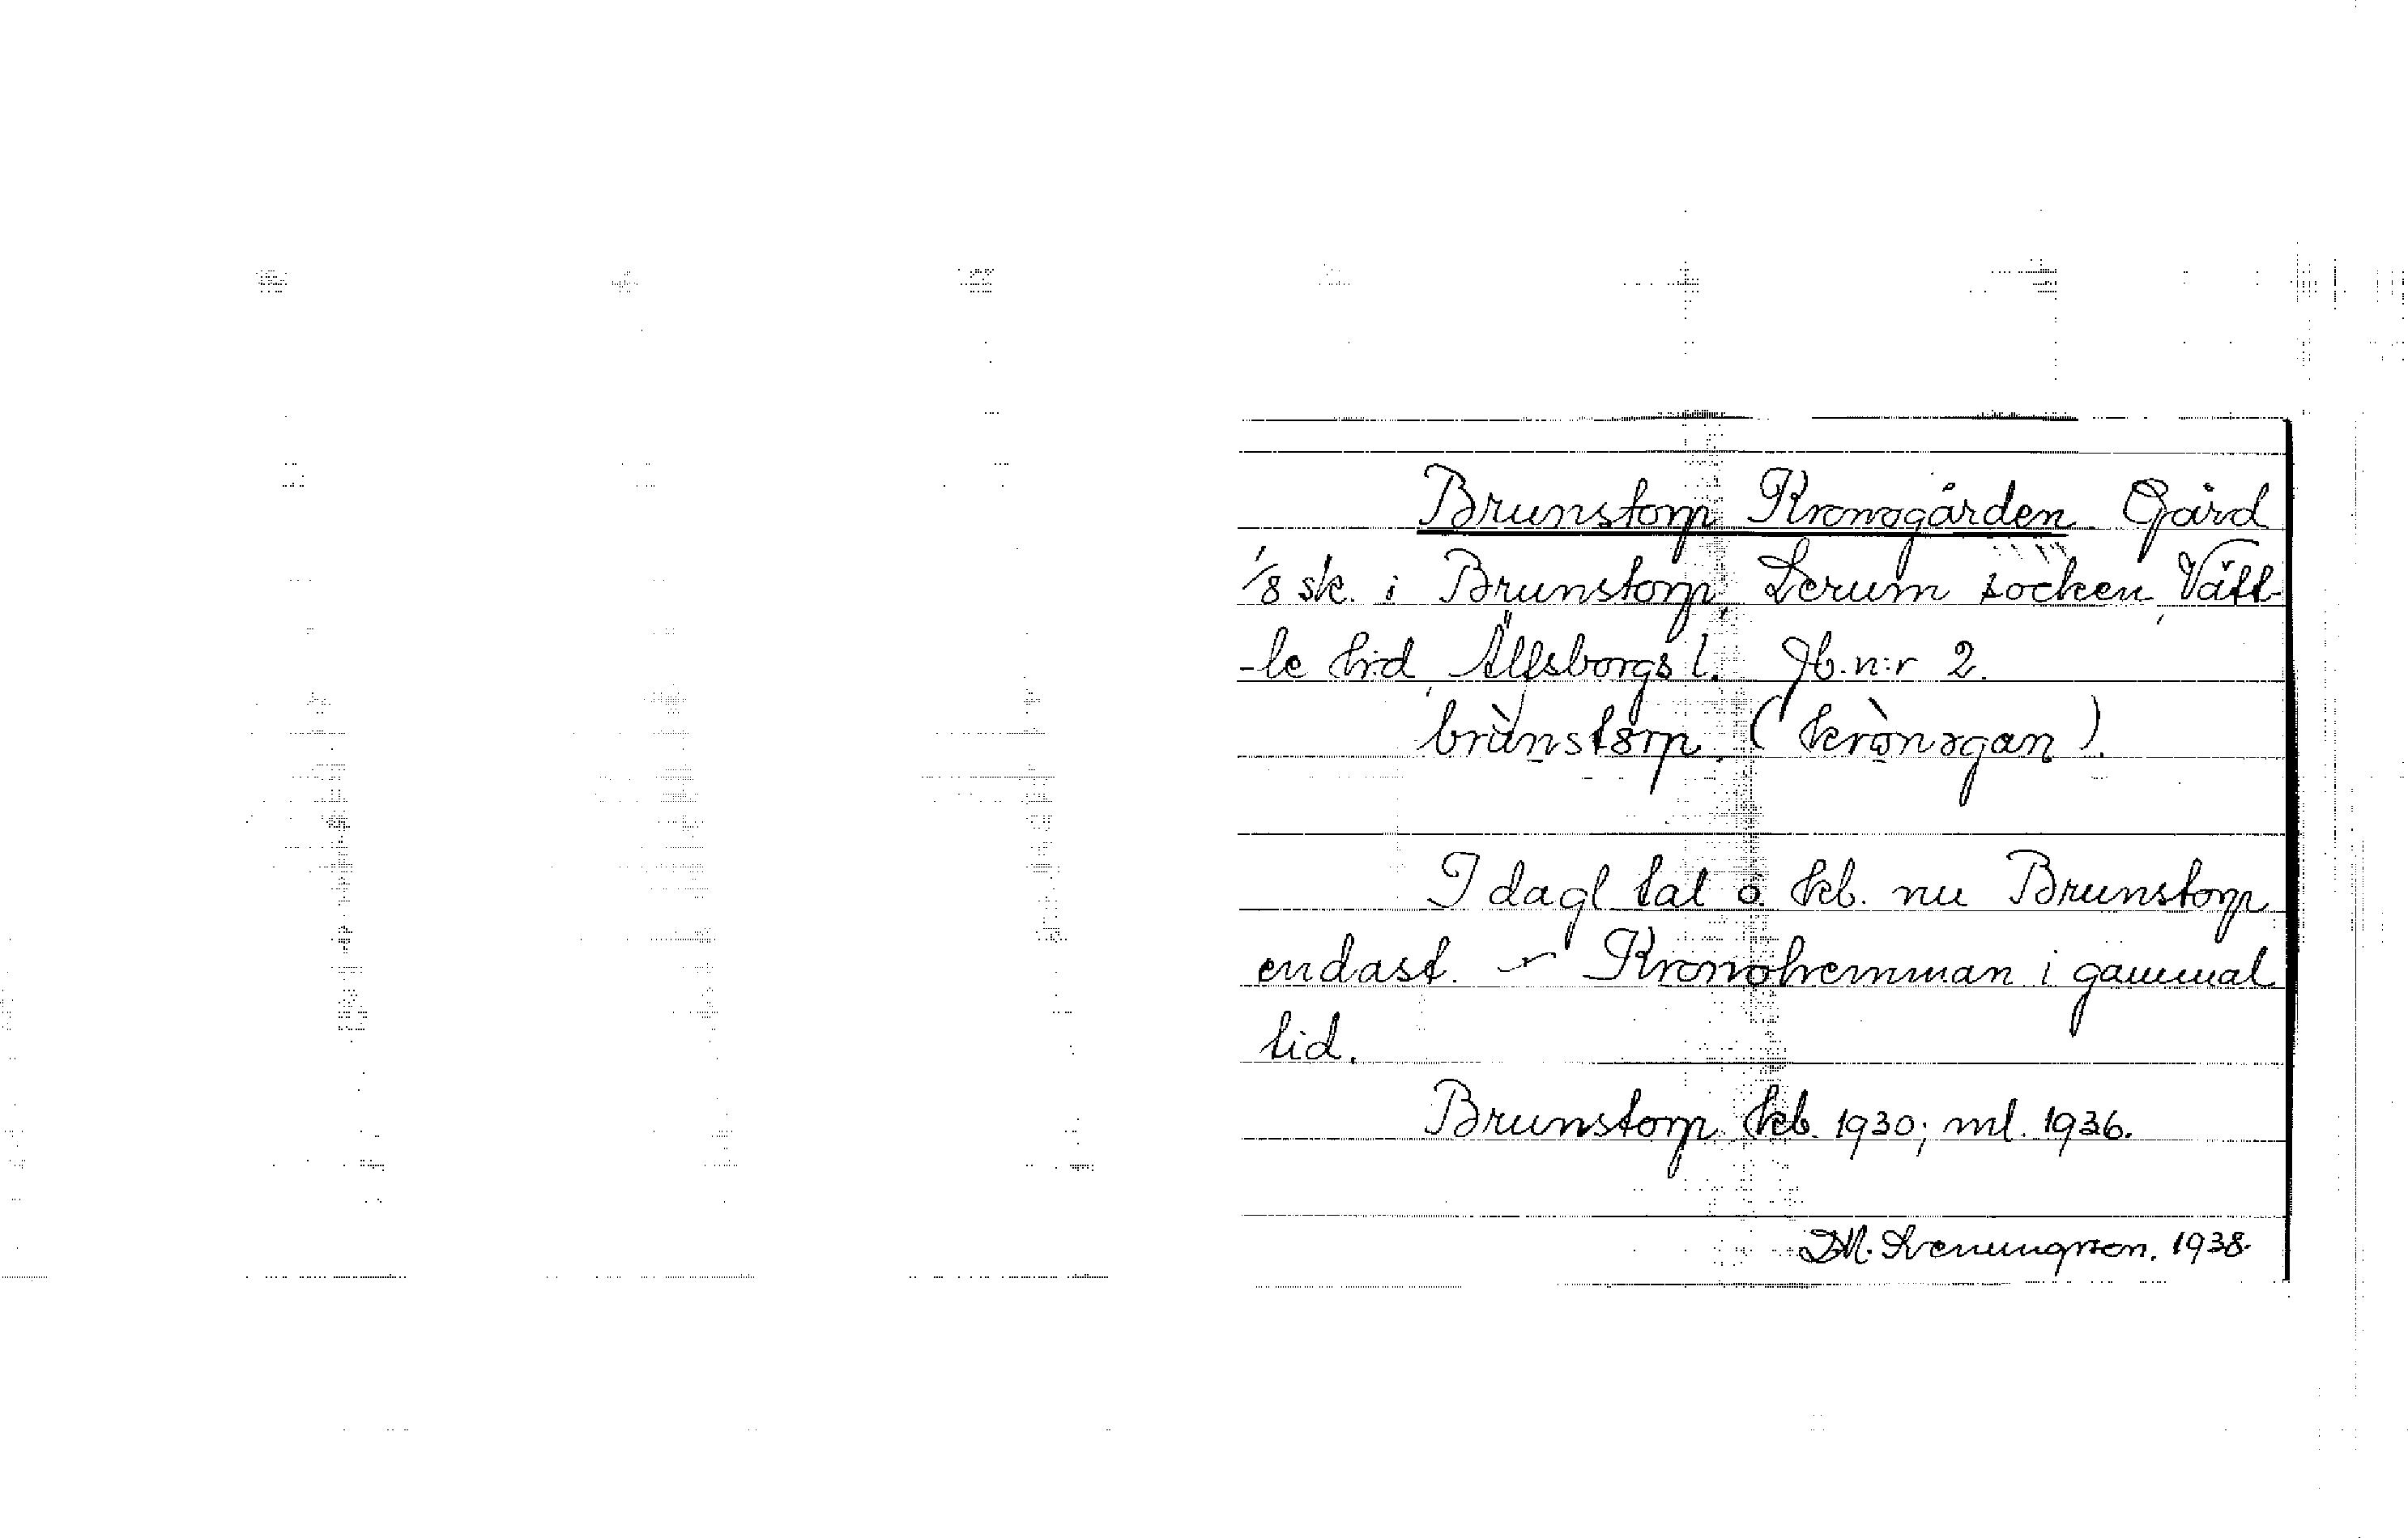 Brunstorp Kronogården Gård
1/8 sk. i Brunstorp, Lerum socken, Vätt-
-le hd, Älfsborgs l. Jb. n:r 2.
brùnstørp (krònogan).
I dagl tal o. kb. nu Brunstorp
endast. – Kronohemman i gammal
tid.
Brunstorp kb. 1930; ml. 1936.
1938.